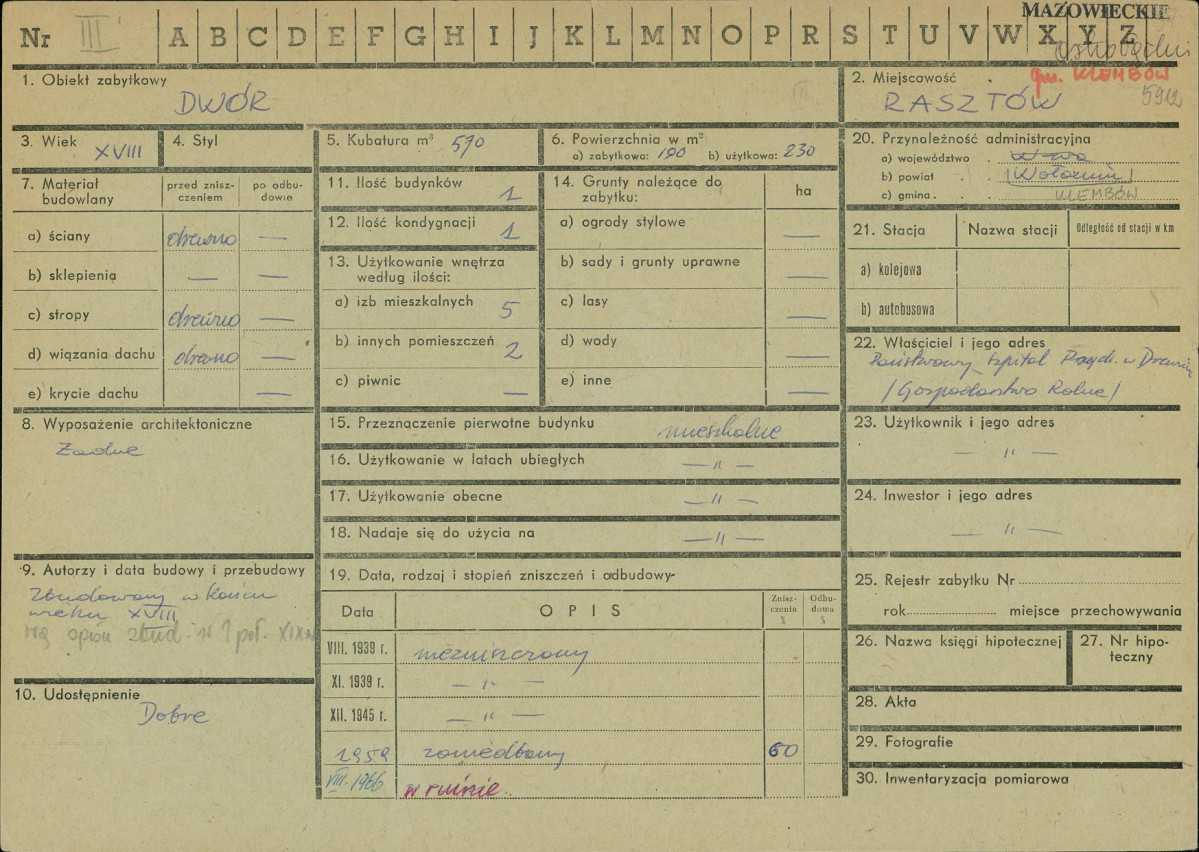 MAZOWIECKIE
Nr III A B C D E F G H I J K L M N O P R S T U V W X Y Z
gm. KLEMBÓW
5912
1. Obiekt zabytkowy
DWÓR
2. Miejscowość
RASZTÓW
3. Wiek XVIII
4. Styl
5. Kubatura m³ 570
6. Powierzchnia w m²
a) zabytkowa: 190 b) użytkowa: 230
20. Przynależność administracyjna
a) województwo W-wa
b) powiat Wołomin
c) gmina KLEMBÓW
7. Materiał budowlany
przed zniszczeniem
po odbudowie
a) ściany drewno —
b) sklepienia — —
c) stropy drewno —
d) wiązania dachu drewno —
e) krycie dachu —
11. Ilość budynków 1
12. Ilość kondygnacji 1
13. Użytkowanie wnętrza
według ilości:
a) izb mieszkalnych 5
b) innych pomieszczeń 2
c) piwnic —
14. Grunty należące do
zabytku:
ha
a) ogrody stylowe —
b) sady i grunty uprawne —
c) lasy —
d) wody —
e) inne —
21. Stacja Nazwa stacji Odległość od stacji w km
a) kolejowa
b) autobusowa
22. Właściciel i jego adres
Państwowy Szpital Psych. w
/Gospodarstwo Rolne/
8. Wyposażenie architektoniczne
Żadne
15. Przeznaczenie pierwotne budynku mieszkalne
16. Użytkowanie w latach ubiegłych — " —
17. Użytkowanie obecne — " —
18. Nadaje się do użycia na — " —
23. Użytkownik i jego adres
— " —
24. Inwestor i jego adres
— " —
9. Autorzy i data budowy i przebudowy
Zbudowany w końcu
wieku XVIII
wg opisu zbud. w
10. Udostępnienie
Dobre
19. Data, rodzaj i stopień zniszczeń i odbudowy
Data OPIS Zniszczenia % Odbudowa %
VIII. 1939 r. niezniszczony
XI. 1939 r. — " —
XII. 1945 r. — " —
1959 zaniedbany 60
VIII. 1966 w ruinie.
25. Rejestr zabytku Nr
rok miejsce przechowywania
26. Nazwa księgi hipotecznej
27. Nr hipoteczny
28. Akta
29. Fotografie
30. Inwentaryzacja pomiarowa